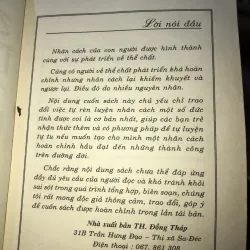 Lời nói đầu
Nhân cách của con người được hình thành
cùng với sự phát triển về thể chất.
Cũng có người về thể chất phát triển khá hoàn
chỉnh nhưng nhân cách lại khiếm khuyết và
ngược lại. Điều đó do nhiều nguyên nhân.
Nội dung cuốn sách này chủ yếu chỉ trao
đổi việc tự rèn luyện nhân cách một số đức
tính được coi là cơ bản nhất, giúp các bạn trẻ
nhận thức thêm và có phương pháp để tự luyện
tự tu nếu muốn tạo cho mình một nhân cách
hoàn chỉnh hầu đạt đến những thành công
trên đường đời.
Chắc rằng nội dung sách chưa thể đáp ứng
đầy đủ yêu cầu của người đọc và khó tránh khỏi
sai sót trong quá trình tổng hợp, biên soạn, chúng
tôi rất mong độc giả thông cảm, trao đổi, góp ý
để cuốn sách được hoàn chỉnh trong lần tái bản.
Nhà xuất bản TH. Đồng Tháp
31B Trần Hưng Đạo - Thị xã Sa-Đéc
Điện thoại : 067. 861 308